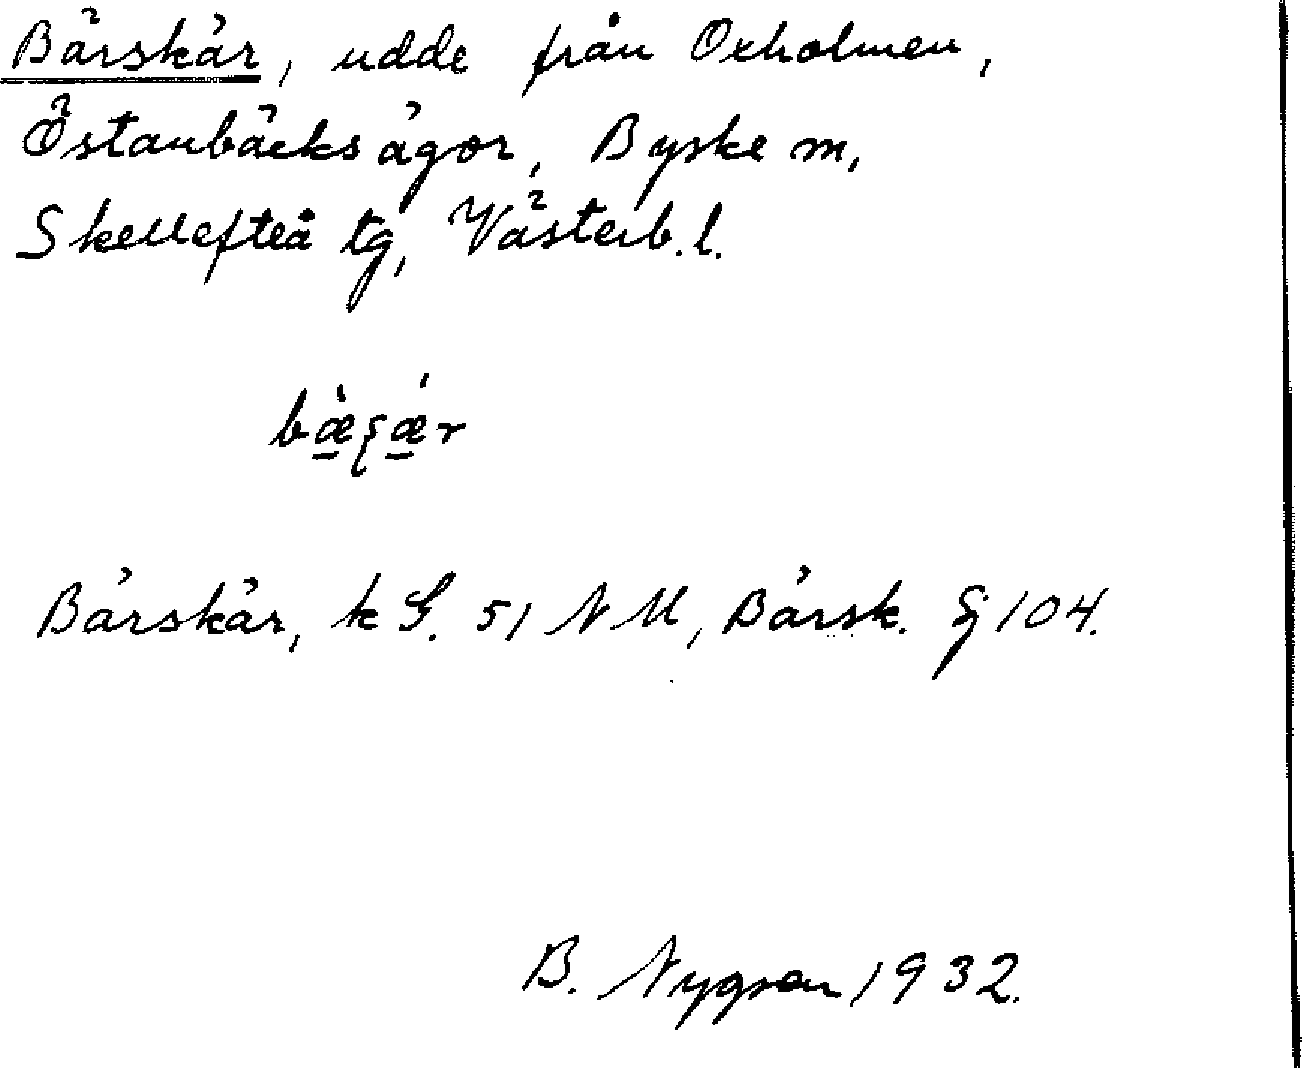 Bärskär, udde från Oxholmen,
Östanbäcks ägor, Byske sn,
Skellefteå tg, Västerb. l.
bæ̀ʂǽr
Bärskär, k G. 51 N M, Bärsk. G 104.
B. Nygren 1932.